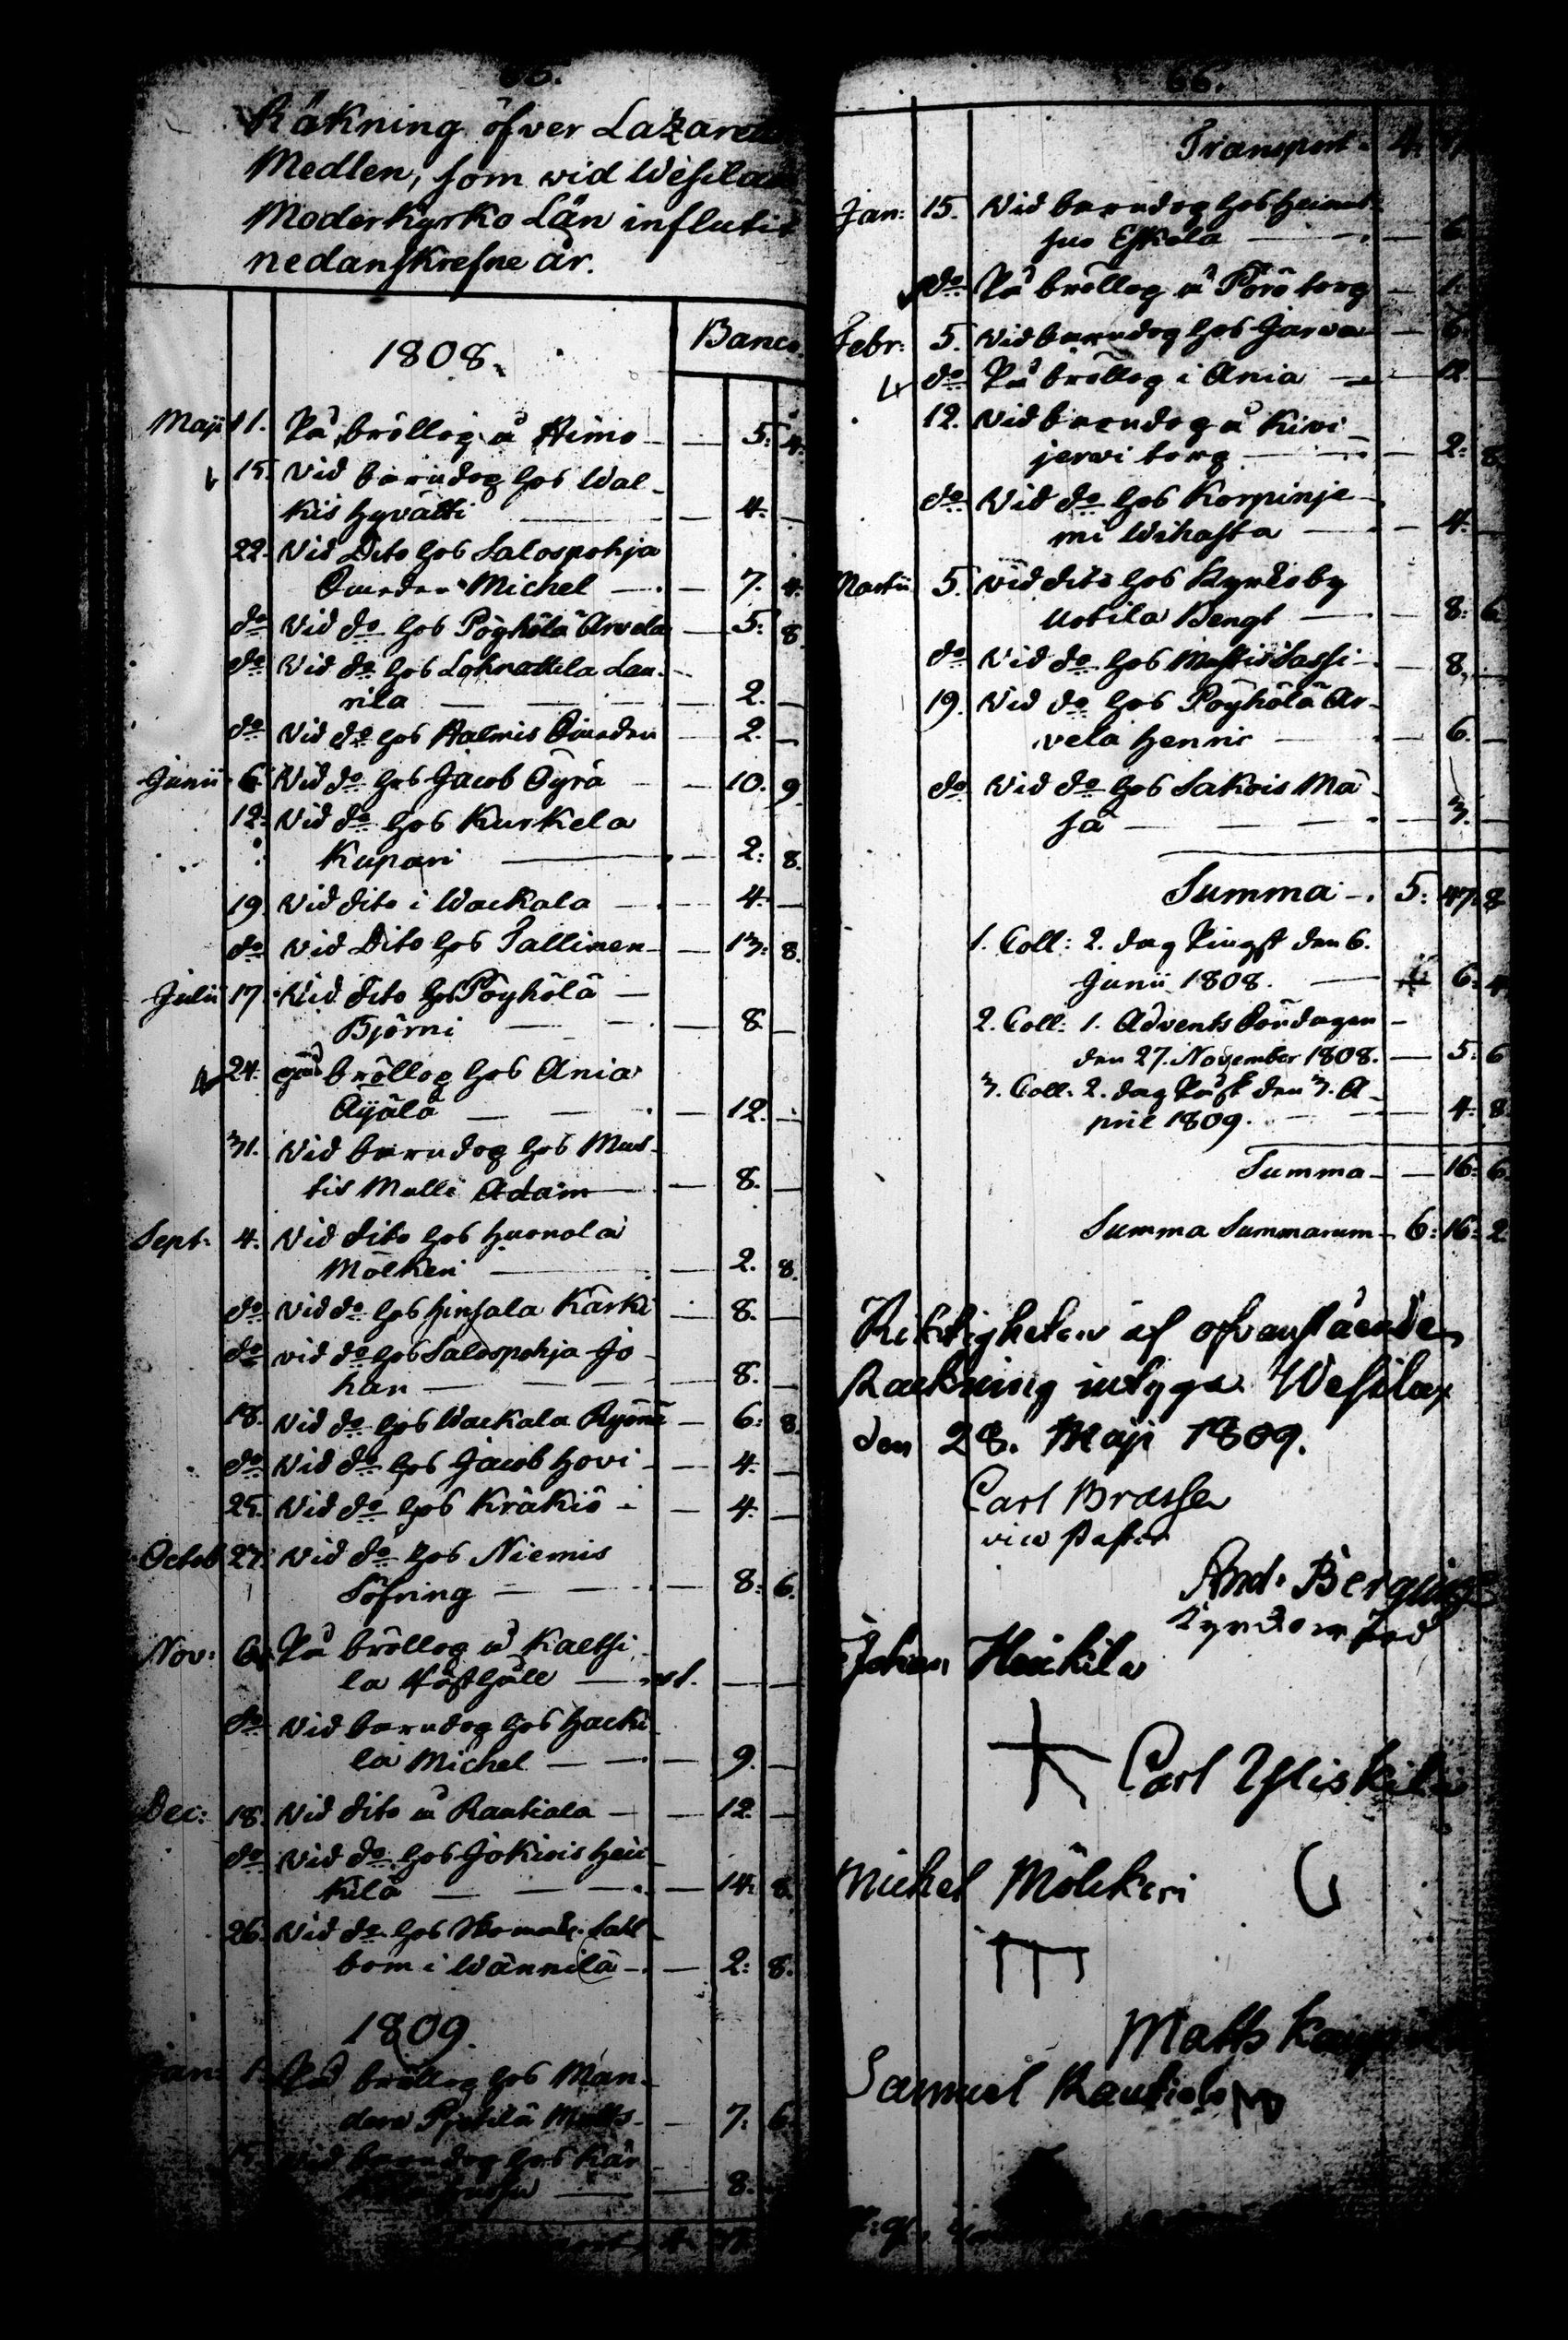 Räkning öfver Lazarett
Medlen, som vid Wesilax
Moderkyrko Län influtit
nedanskrefne år.
1808. Banco.
Maji 11. På bröllog å Aimo — 5: 4.
15. Vid barndog hos Wal-
kis hyvätti — 4. —
22. Vid Dito hos Salospohja
Michel — 7. 4.
do Vid do hos Pöyhölä Arvela — 5: 8.
do Vid do hos Lahnattila Lau-
rila — 2. —
do Vid do hos Halmis — 2. —
Junii 6. Vid do hos Jacob Öyrä — 10. 9
12. Vid do hos Kurkela
Kupari — 2: 8.
19. Vid dito i Wackala — 4. —
do Vid Dito hos Tallinen — 13: 8.
Julii 17. Vid dito hos Pöyhölä —
Björni — 8. —
24. bröllog hos Ania
Äijälä — 12. —
31. Vid barndog hos Mus-
tis Malli Adam — 8. —
Sept. 4. Vid dito hos Huonola
Mölkeri — 2. 8.
do Vid do hos Hinsala Kärki — 8. —
do vid do hos Salospohja Jo-
han — 8. —
18. Vid do hos Wackala Ryöni — 6: 8.
do Vid do hos Jacob Hovi — 4. —
25. Vid do hos Kräkiö — 4. —
Octob 27. Vid do hos Niemis
Söfring — 8: 6.
Nov: 6. På bröllog å Kaltsi-
la — 
do Vid barndog hos Hacki-
la Michel — 9. —
Dec: 18. Vid dito å Rautiala — 12. —
do Vid do hos Jokiois Hei-
kilä — 14: 8.
26. Vid do hos Sahl-
bom i Wännilä — 2: 8.
1809.
Jan: 1. På bröllog hos Man-
Matts — 7: 6.
15. Vid barndog hos Kär-
— 8.
66.
Transport
Jan: 15. Vid barndog hos
Eskola — 6.
do På bröllog å Pörö torg — 1.
Febr: 5. Vid barndog hos Jarva — 6.
do På bröllog i Ania — 12. —
12. Vid barndog å Kivi-
jervi torg — 2: 8.
do Vid do hos Korpinie-
mi Wihasta — 4. —
Martii 5. vid dito hos Kyrkoby
Uotila Bengt — 8: 6
do Vid do hos Mustis Sassi — 8. —
19. Vid do hos Pöyhölä Ar-
vela Henric — 6. —
do Vid do hos Sakois Ma-
sa — 3. —
Summa — 5: 47: 8
1. Coll: 2. dag Pingst den 6.
Junii 1808. — 6: 4
2. Coll: 1. Advents Söndagen
den 27. November 1808. — 5: 6
3. Coll: 2. dag Påsk den 3. A-
pril 1809. — 4: 8
Summa — 16: 6
Summa Summarum — 6: 16: 2
Riktigheten af ofvanstående
Räckning intyga Wesilax
den 28. Maji 1809.
Carl Brasse
vice Pastor
And. Bergius
Johan Heikilä
Carl Yliskilä
Michel Mölckeri
Matts
Samuel Rautiala